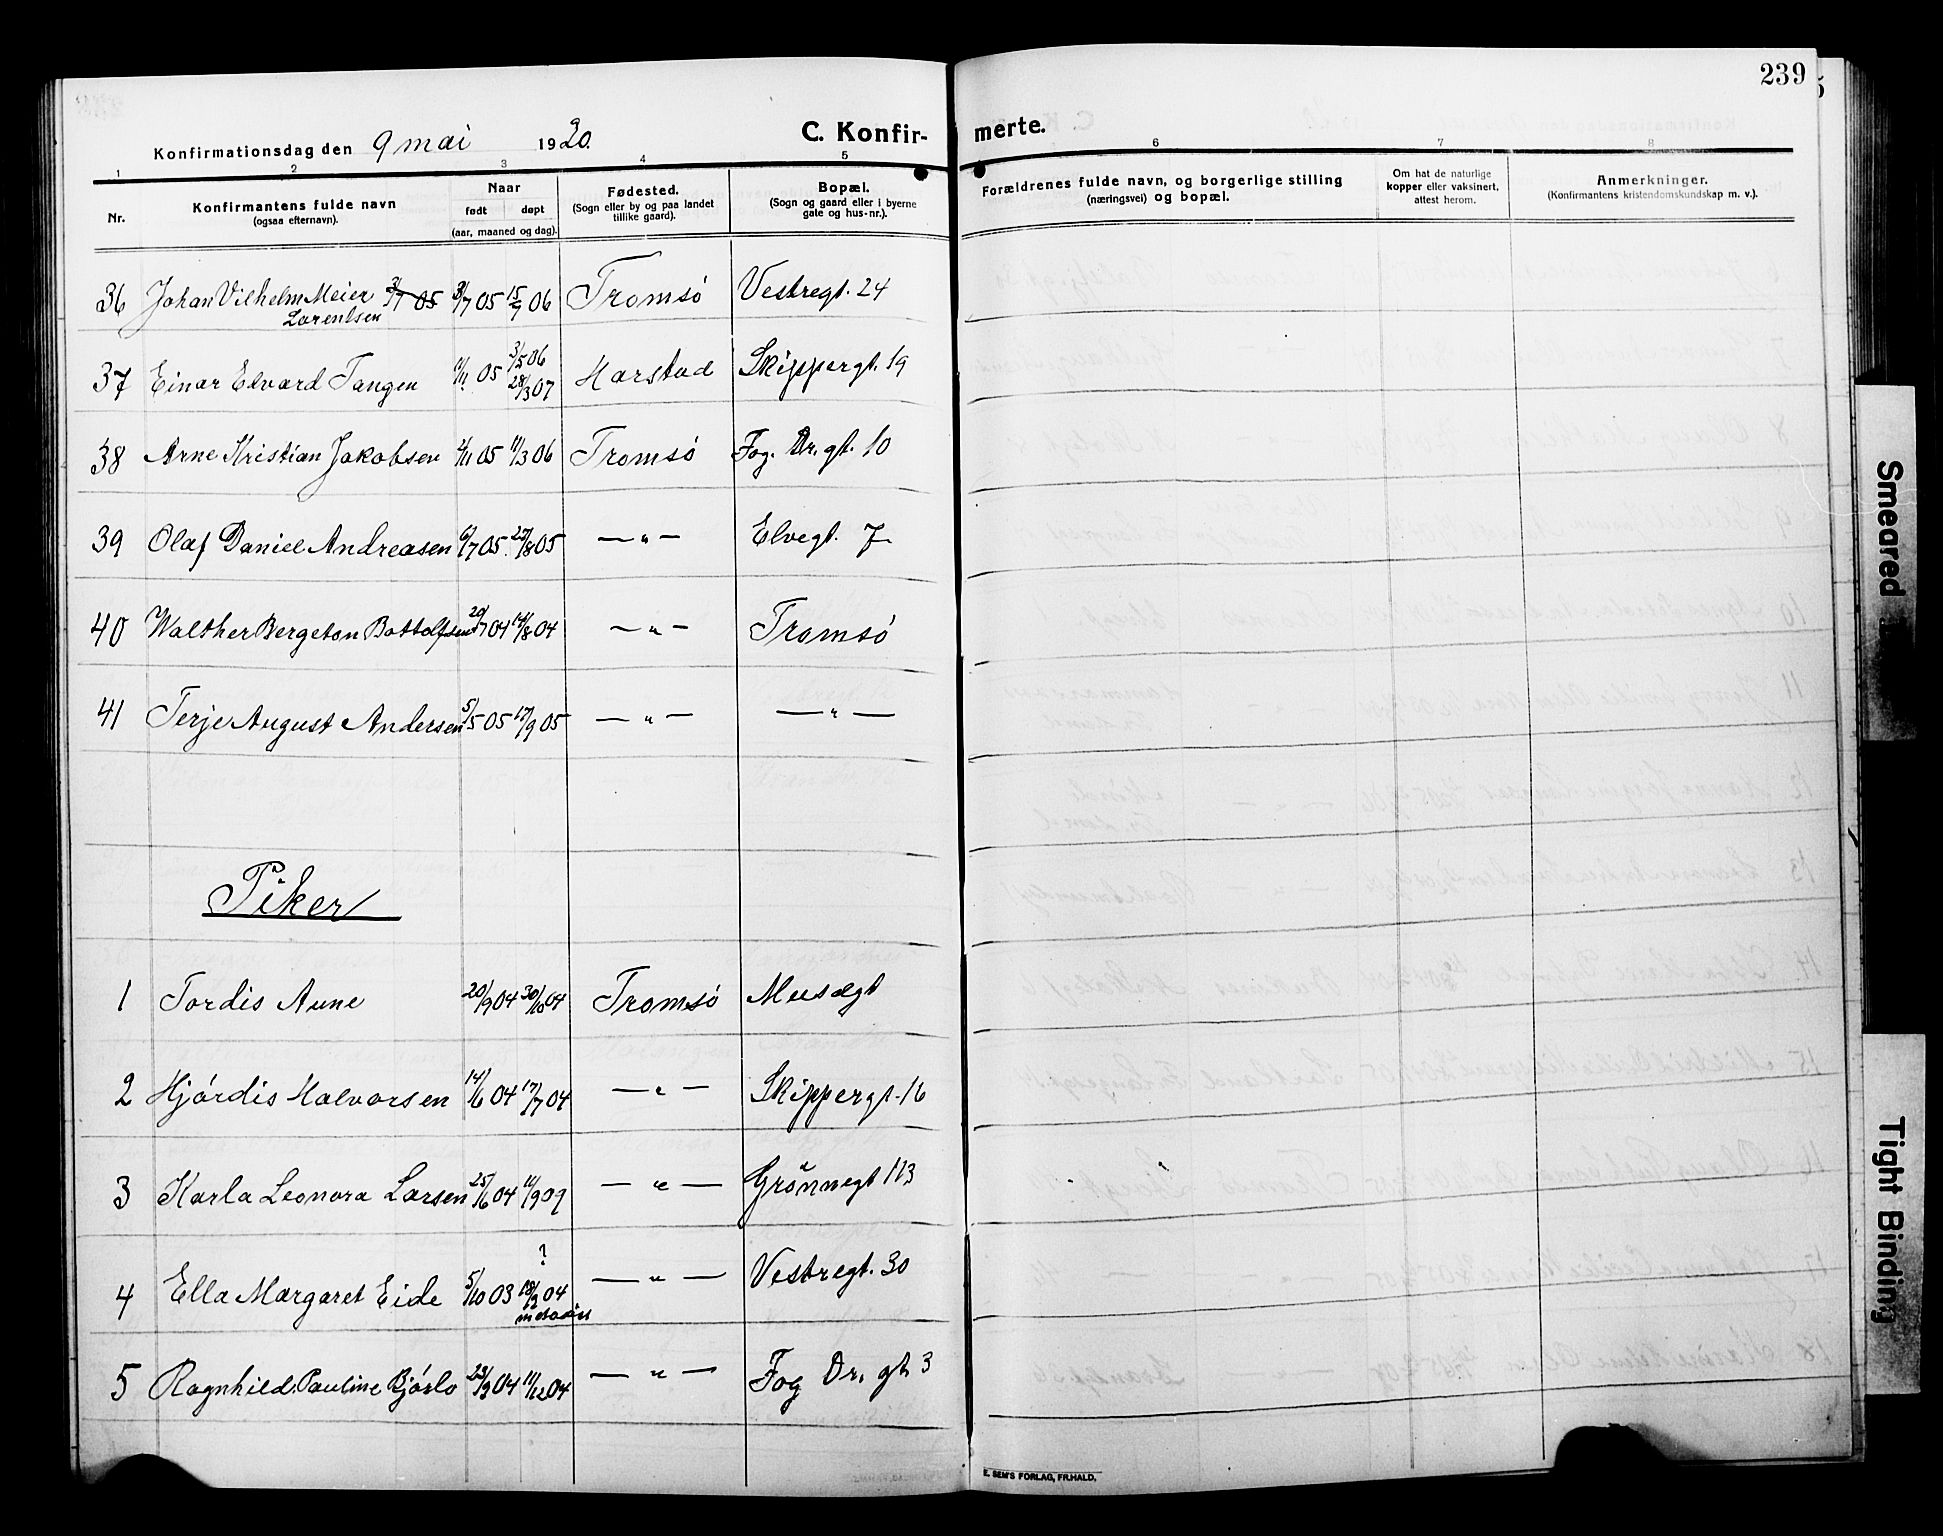 239
Konfirmationsdag den 9 mai 1920. C. Konfir- merte.
1 2 3 4 5 6 7 8
Nr.
Konfirmantens fulde navn
(ogsaa efternavn).
Naar
født døpt
(aar, maaned og dag).
Fødested.
(Sogn eller by og paa landet
tillike gaard).
Bopæl.
(Sogn og gaard eller i byerne
gate og hus-nr.).
Forældrenes fulde navn, og borgerlige stilling
(næringsvei) og bopæl.
Om hat de naturlige
kopper eller vaksinert,
attest herom.
Anmerkninger.
(Konfirmantens kristendomskundskap m. v.).
36 Johan Vilhelm Meier 3/7 05 3/7 05 15/7 06 Tromsø Vestregt. 24
Lorentsen
37 Einar Edvard Tangen 11/11 05 3/5 06 Harstad Skippergt. 19
28/3 07
38 Arne Kristian Jakobsen 2/11 05 11/3 06 Tromsø Fog. Dr. gt. 10
39 Olaf Daniel Andreasen 6/7 05. 27/8 05 — " — Elvegt. 7
40 Walther Bergeton Bottolfsen 20/7 04 14/8 04 — " — Tromsø
41 Terje August Andersen 5/5 05 17/9 05 — " — — " —
Piker
1 Tordis Aune 20/9 04 30/10 04 Tromsø Musægt
2 Hjørdis Halvorsen 14/6 04 17/7 04 — " — Skippergt. 16
3 Karla Leonora Larsen 25/6 04 11/9 09 — " — Grønnegt 113
?
4 Ella Margaret Eide 5/10 03 18/12 04 — " — Vestregt. 30
5 Ragnhild Pauline Bjørlo 23/9 04 11/12 04 — " — Fog Dr. gt. 3
E. SEM'S FORLAG, FR.HALD.
Smeared
Tight Binding